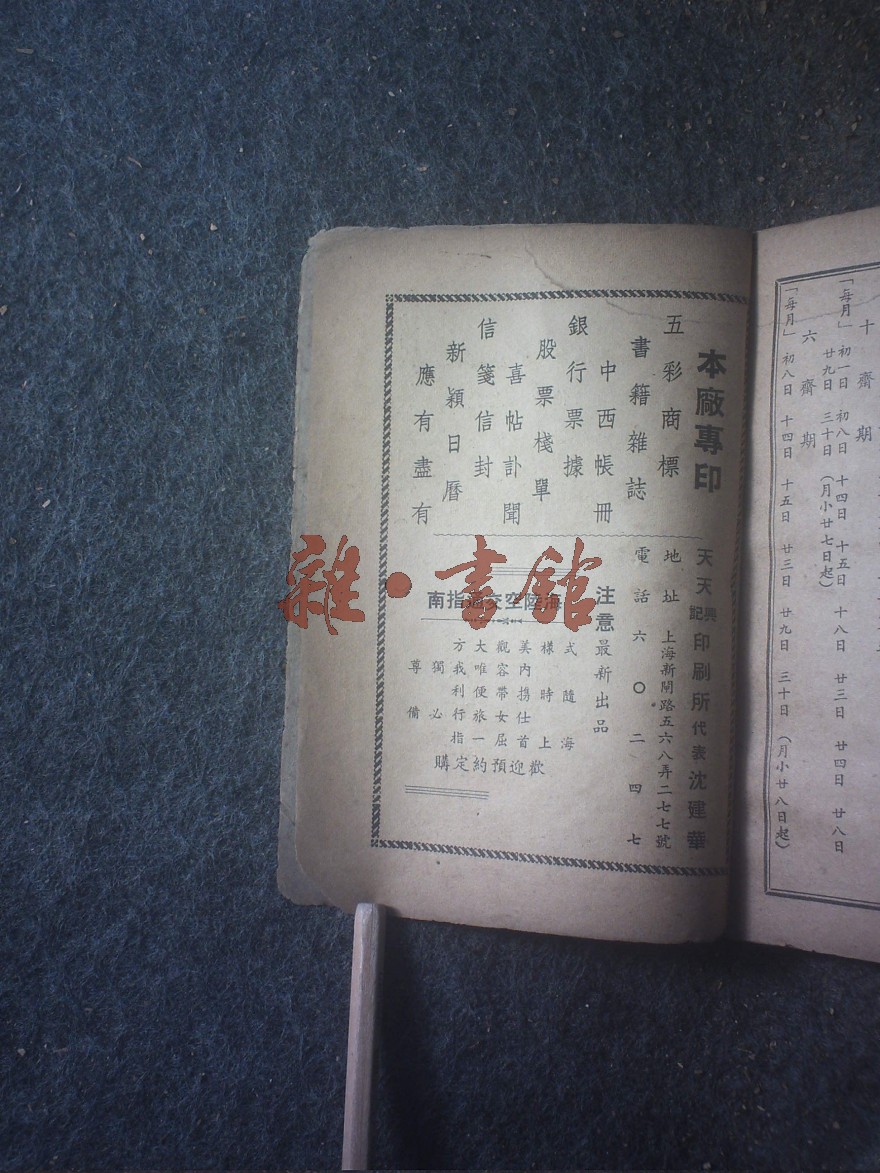 十齊期
「每月」初一日 初八日 十四日 十五日 十八日 廿三日 廿四日 廿八日
廿九日 三十日 (月小廿七日起)
六齊期
「每月」初八日 十四日 十五日 廿三日 廿九日 三十日 (月小廿八日起)
本廠專印
五彩商標
書籍雜誌
中西帳冊
銀行票據
股票棧單
喜帖訃聞
信箋信封
新穎日曆
應有盡有
天天興記印刷所代表沈建華
地址 上海新閘路五六八弄二七七號
電話六〇二四七
注意最新出品
海陸空交通指南
式樣美觀大方
內容唯我獨尊
隨時携帶便利
仕女旅行必備
海上首屈一指
歡迎預約定購
雜·書館